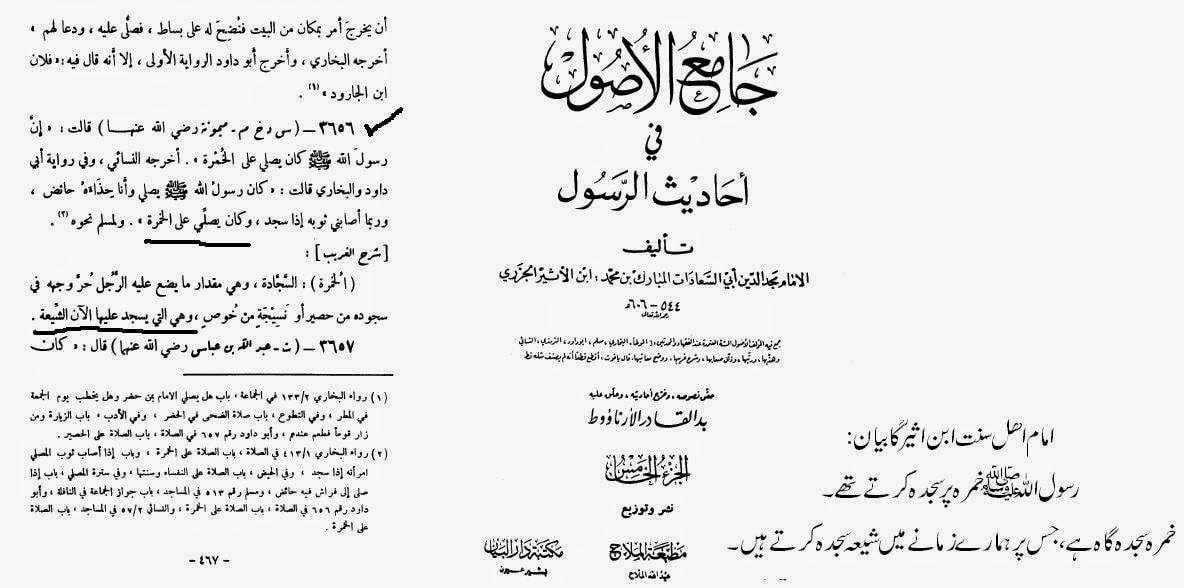 أن يخرجَ أمر بمكان من البيت فنُضِحَ له على بساط ، فصلَّى عليه ، ودعا لهم »
أخرجه البخاري ، وأخرج أبو داود الرواية الأولى ، إلا أنه قال فيه : « فلان
ابن الجارود » (١) .
٣٦٥٦ – ( س د خ م - ميمونة رضي الله عنها ) قالت : « إنَّ
رسولَ الله ﷺ كان يصلي على الخُمْرة » . أخرجه النسائي ، وفي رواية أبي
داود والبخاري قالت : « كان رسولُ الله ﷺ يصلي وأنا حِذَاءَهُ حائض ،
وربما أصابني ثوبه إذا سجد ، وكان يصلِّي على الخمرة » . ولمسلم نحوه (٢) .
[ شرح الغريب ] :
( الخمرة ) : السَّجَّادة ، وهي مقدار ما يضع عليه الرَّجُل حُرَّ وجهه في
سجوده من حصير أو نَسِيْجَةٍ من خُوصٍ ، وهي التي يسجد عليها الآن الشِّيعة .
٣٦٥٧ – ( ت - عبد الله بن عباس رضي الله عنهما ) قال : « كان
( ١ ) رواه البخاري ١٣٣/٢ في الجماعة ، باب هل يصلي الامام بمن حضر وهل يخطب يوم الجمعة
في المطر ، وفي التطوع ، باب صلاة الضحى في الحضر ، وفي الأدب ، باب الزيارة ومن
زار قوماً فطعم عندهم ، وأبو داود رقم ٦٥٧ في الصلاة ، باب الصلاة على الحصير .
( ٢ ) رواه البخاري ٤١٣/١ في الصلاة ، باب الصلاة على الخمرة ، وباب إذا أصاب ثوب المصلي
امرأته إذا سجد ، وفي الحيض ، باب الصلاة على النفساء وسنتها ، وفي سترة المصلي ، باب إذا
صلى إلى فراش فيه حائض ، ومسلم رقم ٥١٣ في المساجد ، باب جواز الجماعة في النافلة ، وأبو
داود رقم ٦٥٦ في الصلاة ، باب الصلاة على الخمرة ، والنسائي ٥٧/٢ في المساجد ، باب الصلاة
على الخمرة .
- ٤٦٧ -
جَامِعُ الأُصُول
في
أحَاديْث الرَّسُول
تأليف
الامام مجد الدين أبي السعادات المبارك بن محمد : ابن الأثير الجزري
٥٤٤ - ٦٠٦ هـ
رحمه الله تعالى
جمع فيه المؤلف الأصول الستة المعتمدة عند الفقهاء والمحدثين : ( الموطأ ، البخاري ، مسلم ، ابوداود ، الترمذي ، النسائي
وهذبها ، ورتبها ، وذلل صعابها ، وشرح غريبها ، ووضح معانيها . قال ياقوت : أقطع قطعاً أنه لم يصنف مثله قط
حقق نصوصه ، وخرج أحاديثه ، وعلق عليه
بد القادر الأرناؤوط
الجزء الخامس
نشر وتوزيع
مكتبة دار البيان
بشير عيون
مطبعة الملاح
عبد الله الملاح
امام اهل سنت ابن اثیرؒ کا بیان:
رسول اللہ ﷺ خمرہ پر سجدہ کرتے تھے۔
خمرہ سجدہ گاہ ہے، جس پر ہمارے زمانے میں شیعہ سجدہ کرتے ہیں۔